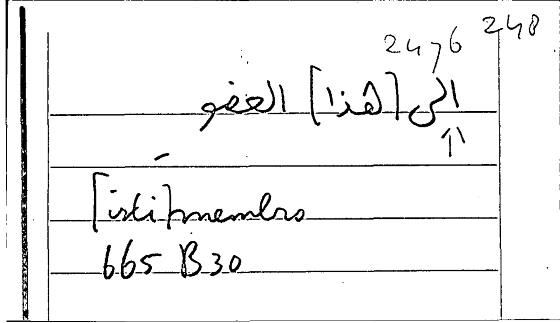 248
2476
الى [هذا] العضو
[isti] membro
665 B 30